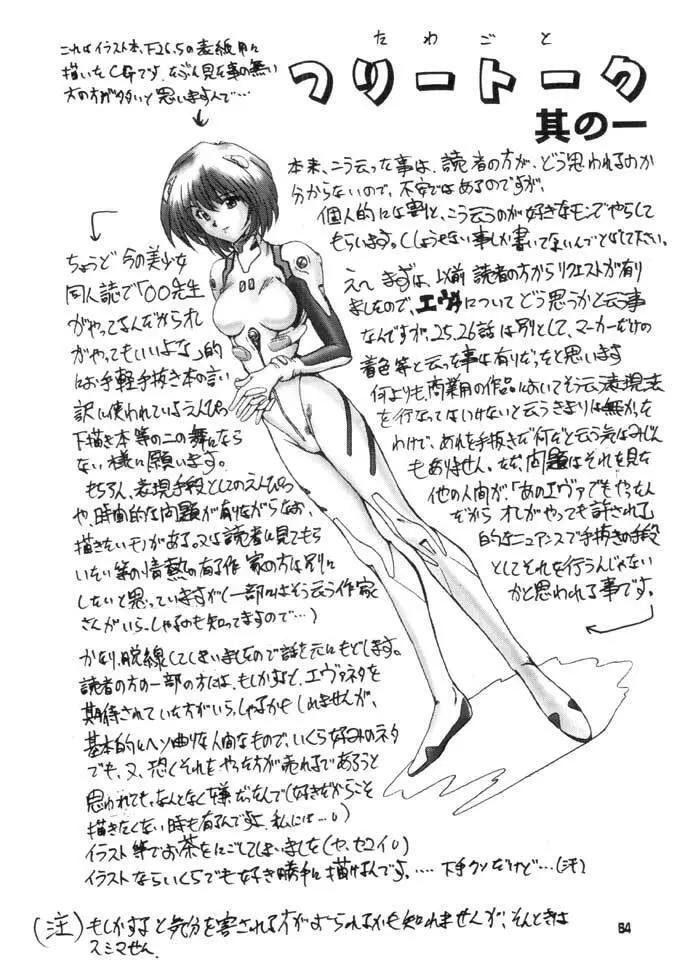 たわごと
フリートーク
其の一
これはイラスト本、下26.5の表紙用に
描いたCGです。たぶん見た事の無い
方の方が多いと思いますんで…
本来、こう云った事は、読者の方が、どう思われるのか
分からないので、不安ではあるのですが、
個人的には割と、こう云うのが好きなモンでやらして
もらいます。(しょうもない事しか書いてないんで
えー まずは、以前 読者の方からリクエストが有り
ましたので、エヴァについてどう思うかと云う事
なんですが、25,26話は別として、マーカーだけの
着色等と云った事は有りだったと思います
何よりも、商業用の作品においてそう云う表現法
を行なってはいけないと云うきまりは無かった
わけで、あれを手抜きだ何だと云う気はみじん
もありません。ただ、問題はそれを見た
他の人間が、「あのエヴァでもやってんだ
だから オレがやっても許される」
的なニュアンスで手抜きの手段
としてそれを行うんじゃない
かと思われる事です。
ちょうど 今の美少女
同人誌で「○○先生
がやってるんだからオレ
がやってもいいよな」的
にお手軽手抜き本の言い
訳に使われているえんぴつ
下描き本等の二の舞にならない
ない様に願います。
もちろん、表現手段としてのえんぴつ
や、時間的な問題が有りながらなお、
描きたいモノがある。又は読者に見てもら
いたい等の情熱の有る作家の方は別に
しないと思っていますが(一部にはそう云う作家
さんがいらっしゃるのも知ってますので…)
かなり、脱線してしまいましたので話を元にもどします。
読者の方の一部の方には、もしかすると、エヴァネタを
期待されていた方がいらっしゃるかもしれませんが、
基本的にヘソ曲りな人間なもので、いくら好みのネタ
でも、又、恐くそれをやった方が売れるであろうと
思われても、なんとなく嫌だったんで(好きだからこそ
描きたくない時も有るんですよ、私には…。)
イラスト等でお茶をにごしてしまいました(ヤ、セコイ。)
イラストならいくらでも好き勝手に描けるんです。…. 下手クソだけど…(汗)
(注) もしかすると気分を害される方がおられるかも知れませんが、そんときは
スミマせん。
64